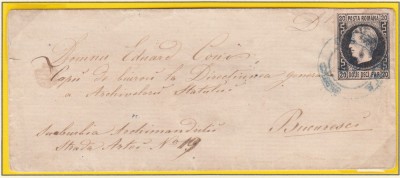 POSTA ROMANA
20 20
20 DOUE DECI PAR 20
Domnu Eduard
de biurou la Directiunea generala
a Archivelor Statului
Suburbia Archimandritu
Strada No 19
Bucuresci